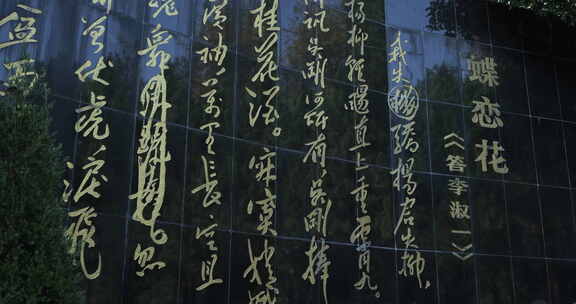 蝶恋花
《答李淑一》
我失骄杨君失柳,
杨柳轻飏直上重霄九。
讯吴刚何所有吴刚捧
桂花酒。寂寞嫦娥
袖万里长空且
魂舞忽
曾伏虎泪飞
盆雨